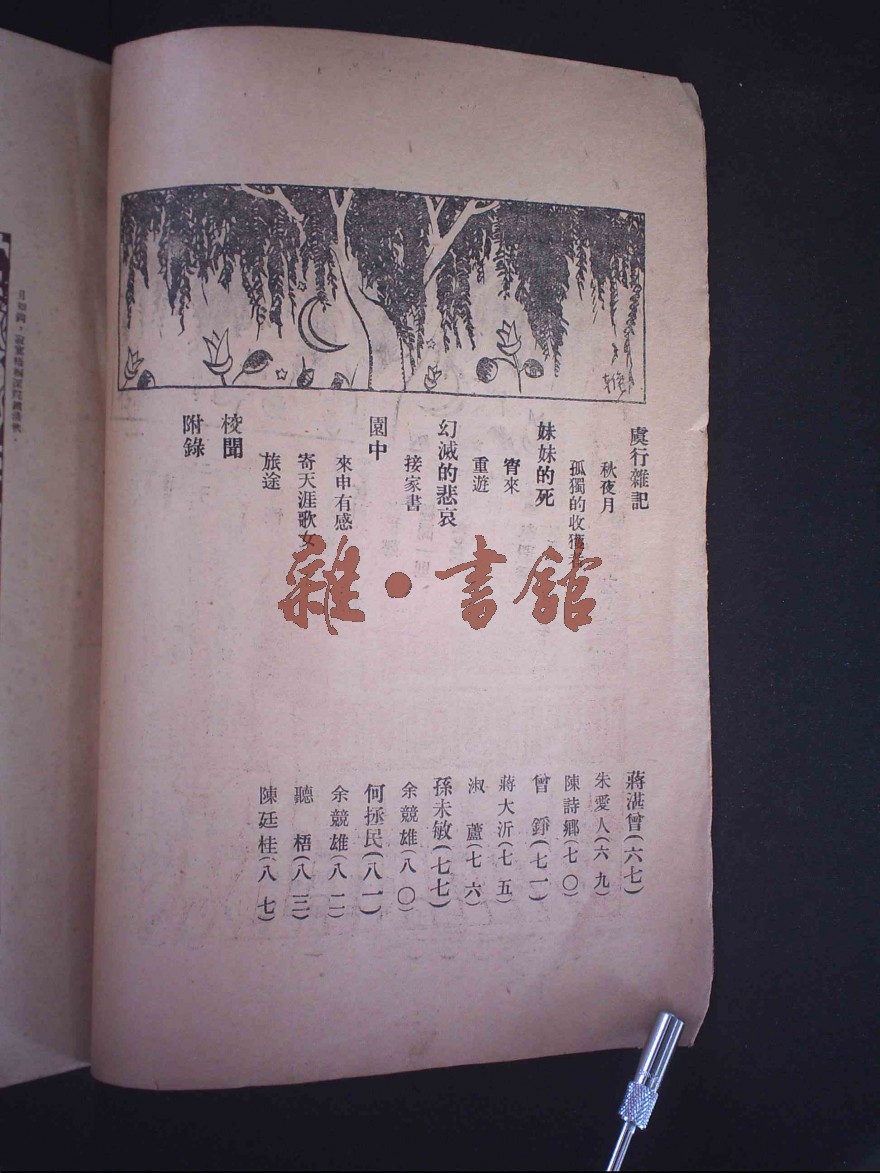 虞行雜記
蔣湛曾(六七)
秋夜月
朱愛人(六九)
孤獨的收獲者
陳詩鄉(七〇)
妹妹的死
曾錚(七一)
宵來
蔣大沂(七五)
重遊
淑蘆(七六)
幻滅的悲哀
孫未敏(七七)
接家書
余競雄(八〇)
園中
何拯民(八一)
來申有感
余競雄(八二)
寄天涯歌女
聽梧(八三)
旅途
陳廷桂(八七)
校聞
附錄
雜·書館